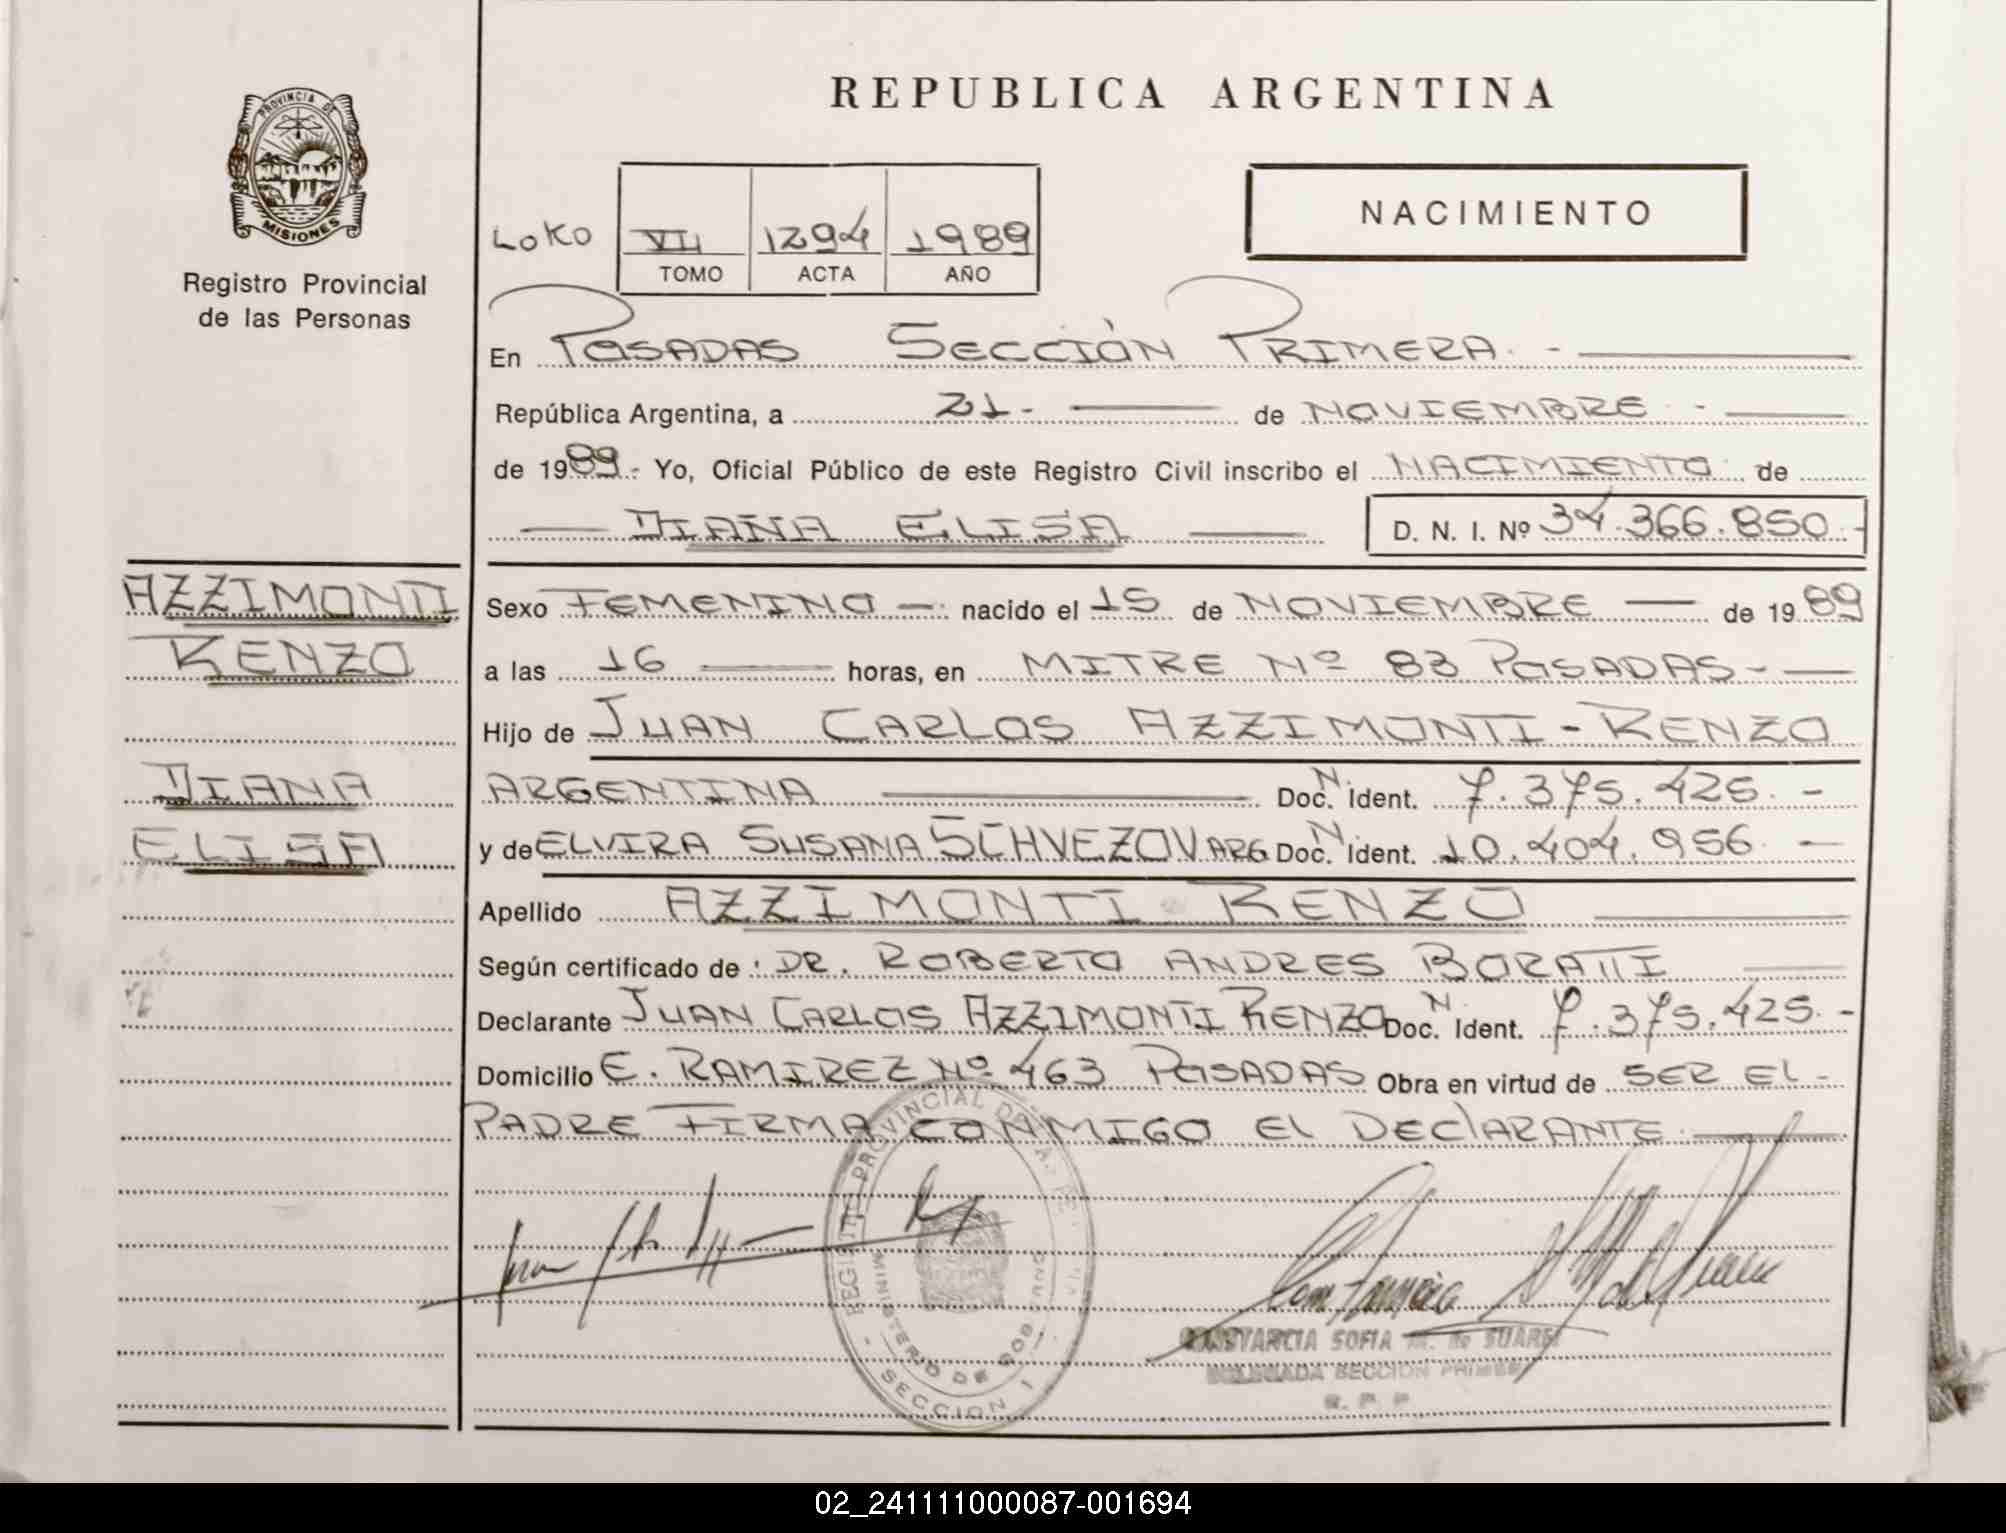 REPUBLICA ARGENTINA
PROVINCIA DE
MISIONES
Registro Provincial
de las Personas
NACIMIENTO
LOKO VII 1294 1989
TOMO ACTA AÑO
En POSADAS SECCIÓN PRIMERA.-
República Argentina, a 21.- de NOVIEMBRE.-
de 1989.- Yo, Oficial Público de este Registro Civil inscribo el NACIMIENTO de
DIANA ELISA D. N. I. Nº 34.366.850.-
AZZIMONTI
RENZO
DIANA
ELISA
Sexo FEMENINO -. nacido el 15 de NOVIEMBRE - de 1989
a las 16 horas, en MITRE Nº 83 POSADAS.-
Hijo de JUAN CARLOS AZZIMONTI-RENZO
ARGENTINA Doc. N. Ident. 7.375.425.-
y de ELVIRA SUSANA SCHVEZOV ARG Doc. N. Ident. 10.404.956.-
Apellido AZZIMONTI RENZO
Según certificado de: DR. ROBERTO ANDRES BORATTI
Declarante JUAN CARLOS AZZIMONTI RENZO Doc. N. Ident. 7.375.425.-
Domicilio E. RAMIREZ Nº 463 POSADAS Obra en virtud de SER EL-
PADRE FIRMA CONMIGO EL DECLARANTE.
PROVINCIAL
MINISTERIO DE GOBIERNO
SECCION 1
CONSTANCIA SOFIA M. de SUAREZ
DELEGADA SECCION PRIMERA
R. P. P
02_241111000087-001694